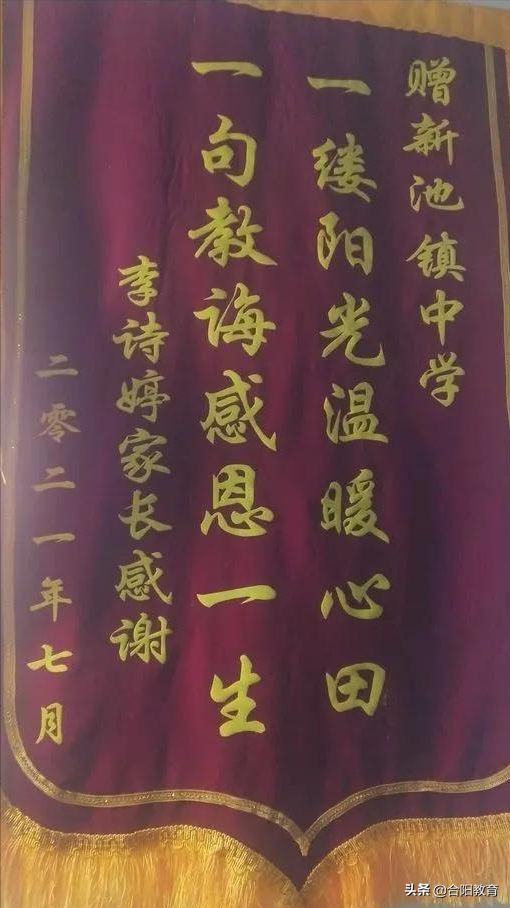 赠新池镇中学
一缕阳光温暖心田
一句教诲感恩一生
李诗婷家长感谢
二零二一年七月
头条 @合阳教育